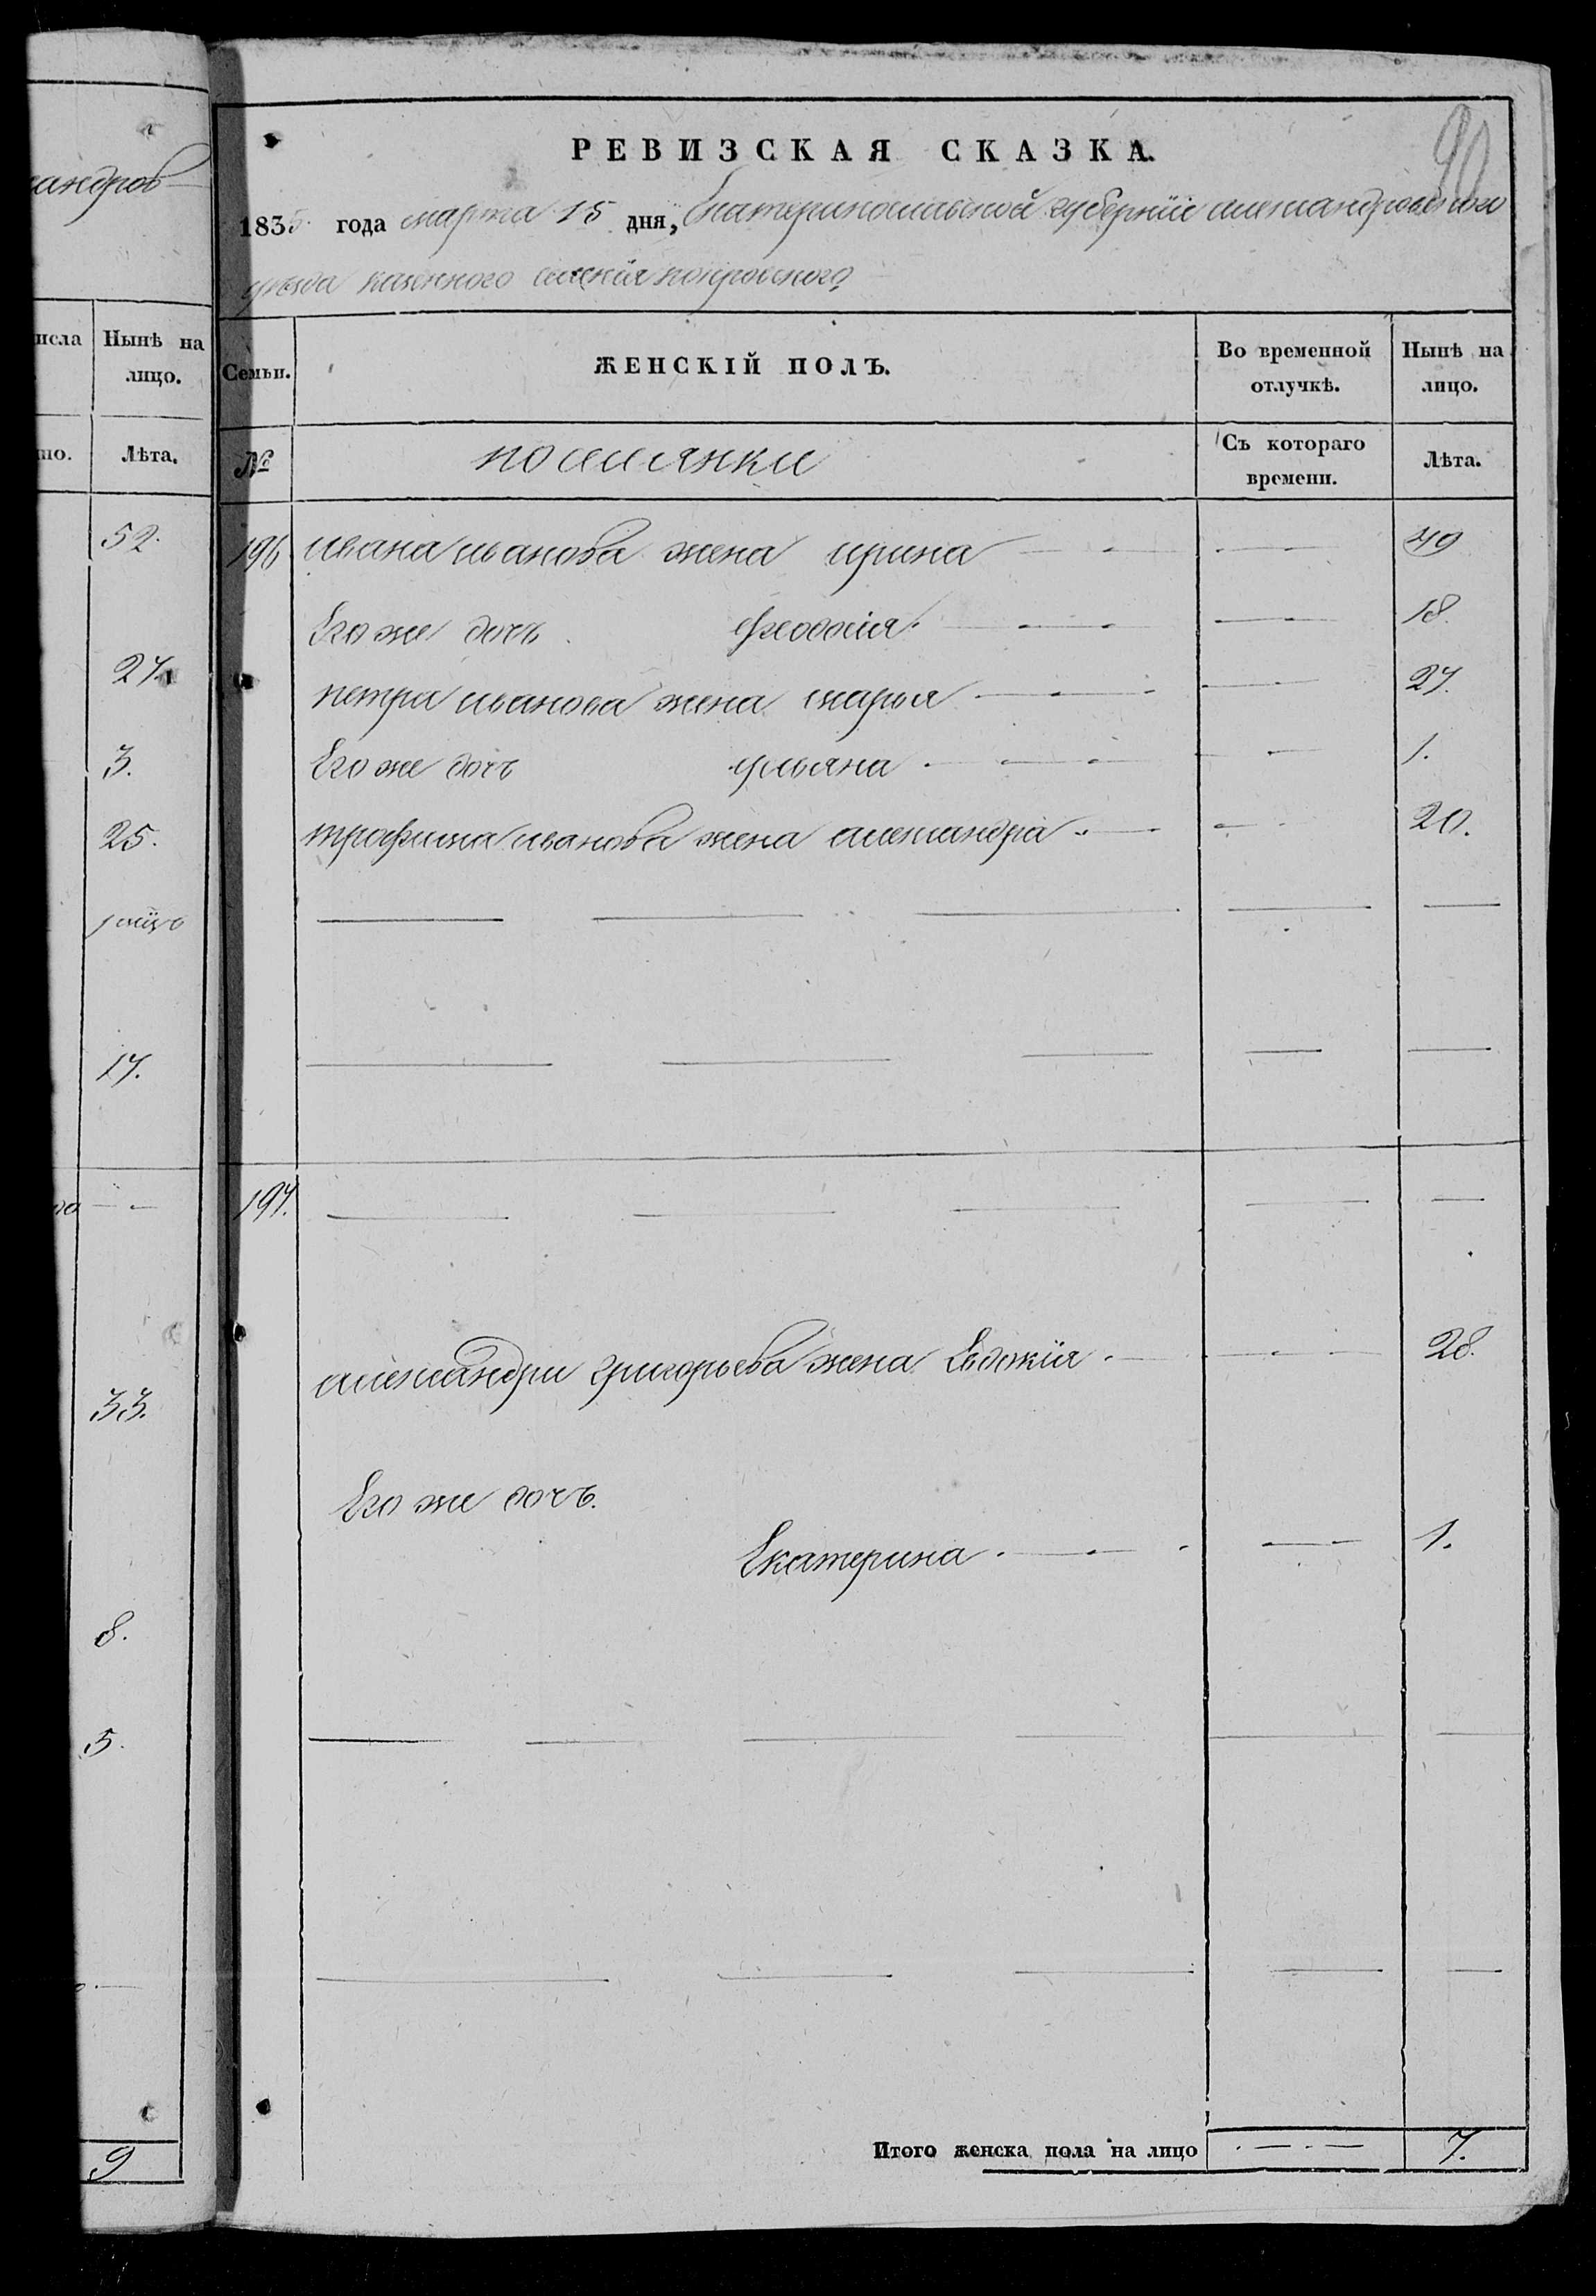 андров
исла
Нынѣ на
лицо.
Лѣта.
52.
27.
3.
25.
17.
33.
8.
5.
9
90
РЕВИЗСКАЯ СКАЗКА.
1835. года марта 15 дня, Екатеринославской губернїи александровского
уѣзда казенного селенїя покровского
Семьи.
ЖЕНСКІЙ ПОЛЪ.
Во временной
отлучкѣ.
Нынѣ на
лицо.
№
поселянки
Съ котораго
времени.
Лѣта.
196 ивана иванова жена ирина 49
Его же дочь феодосія 18.
петра иванова жена марья 27.
Его же дочь ульяна 1.
трофима иванова жена александра 20.
197.
александра григорьева жена Евдокїя 28.
Его же дочь.
Екатерина 1.
Итого женска пола на лицо 7.